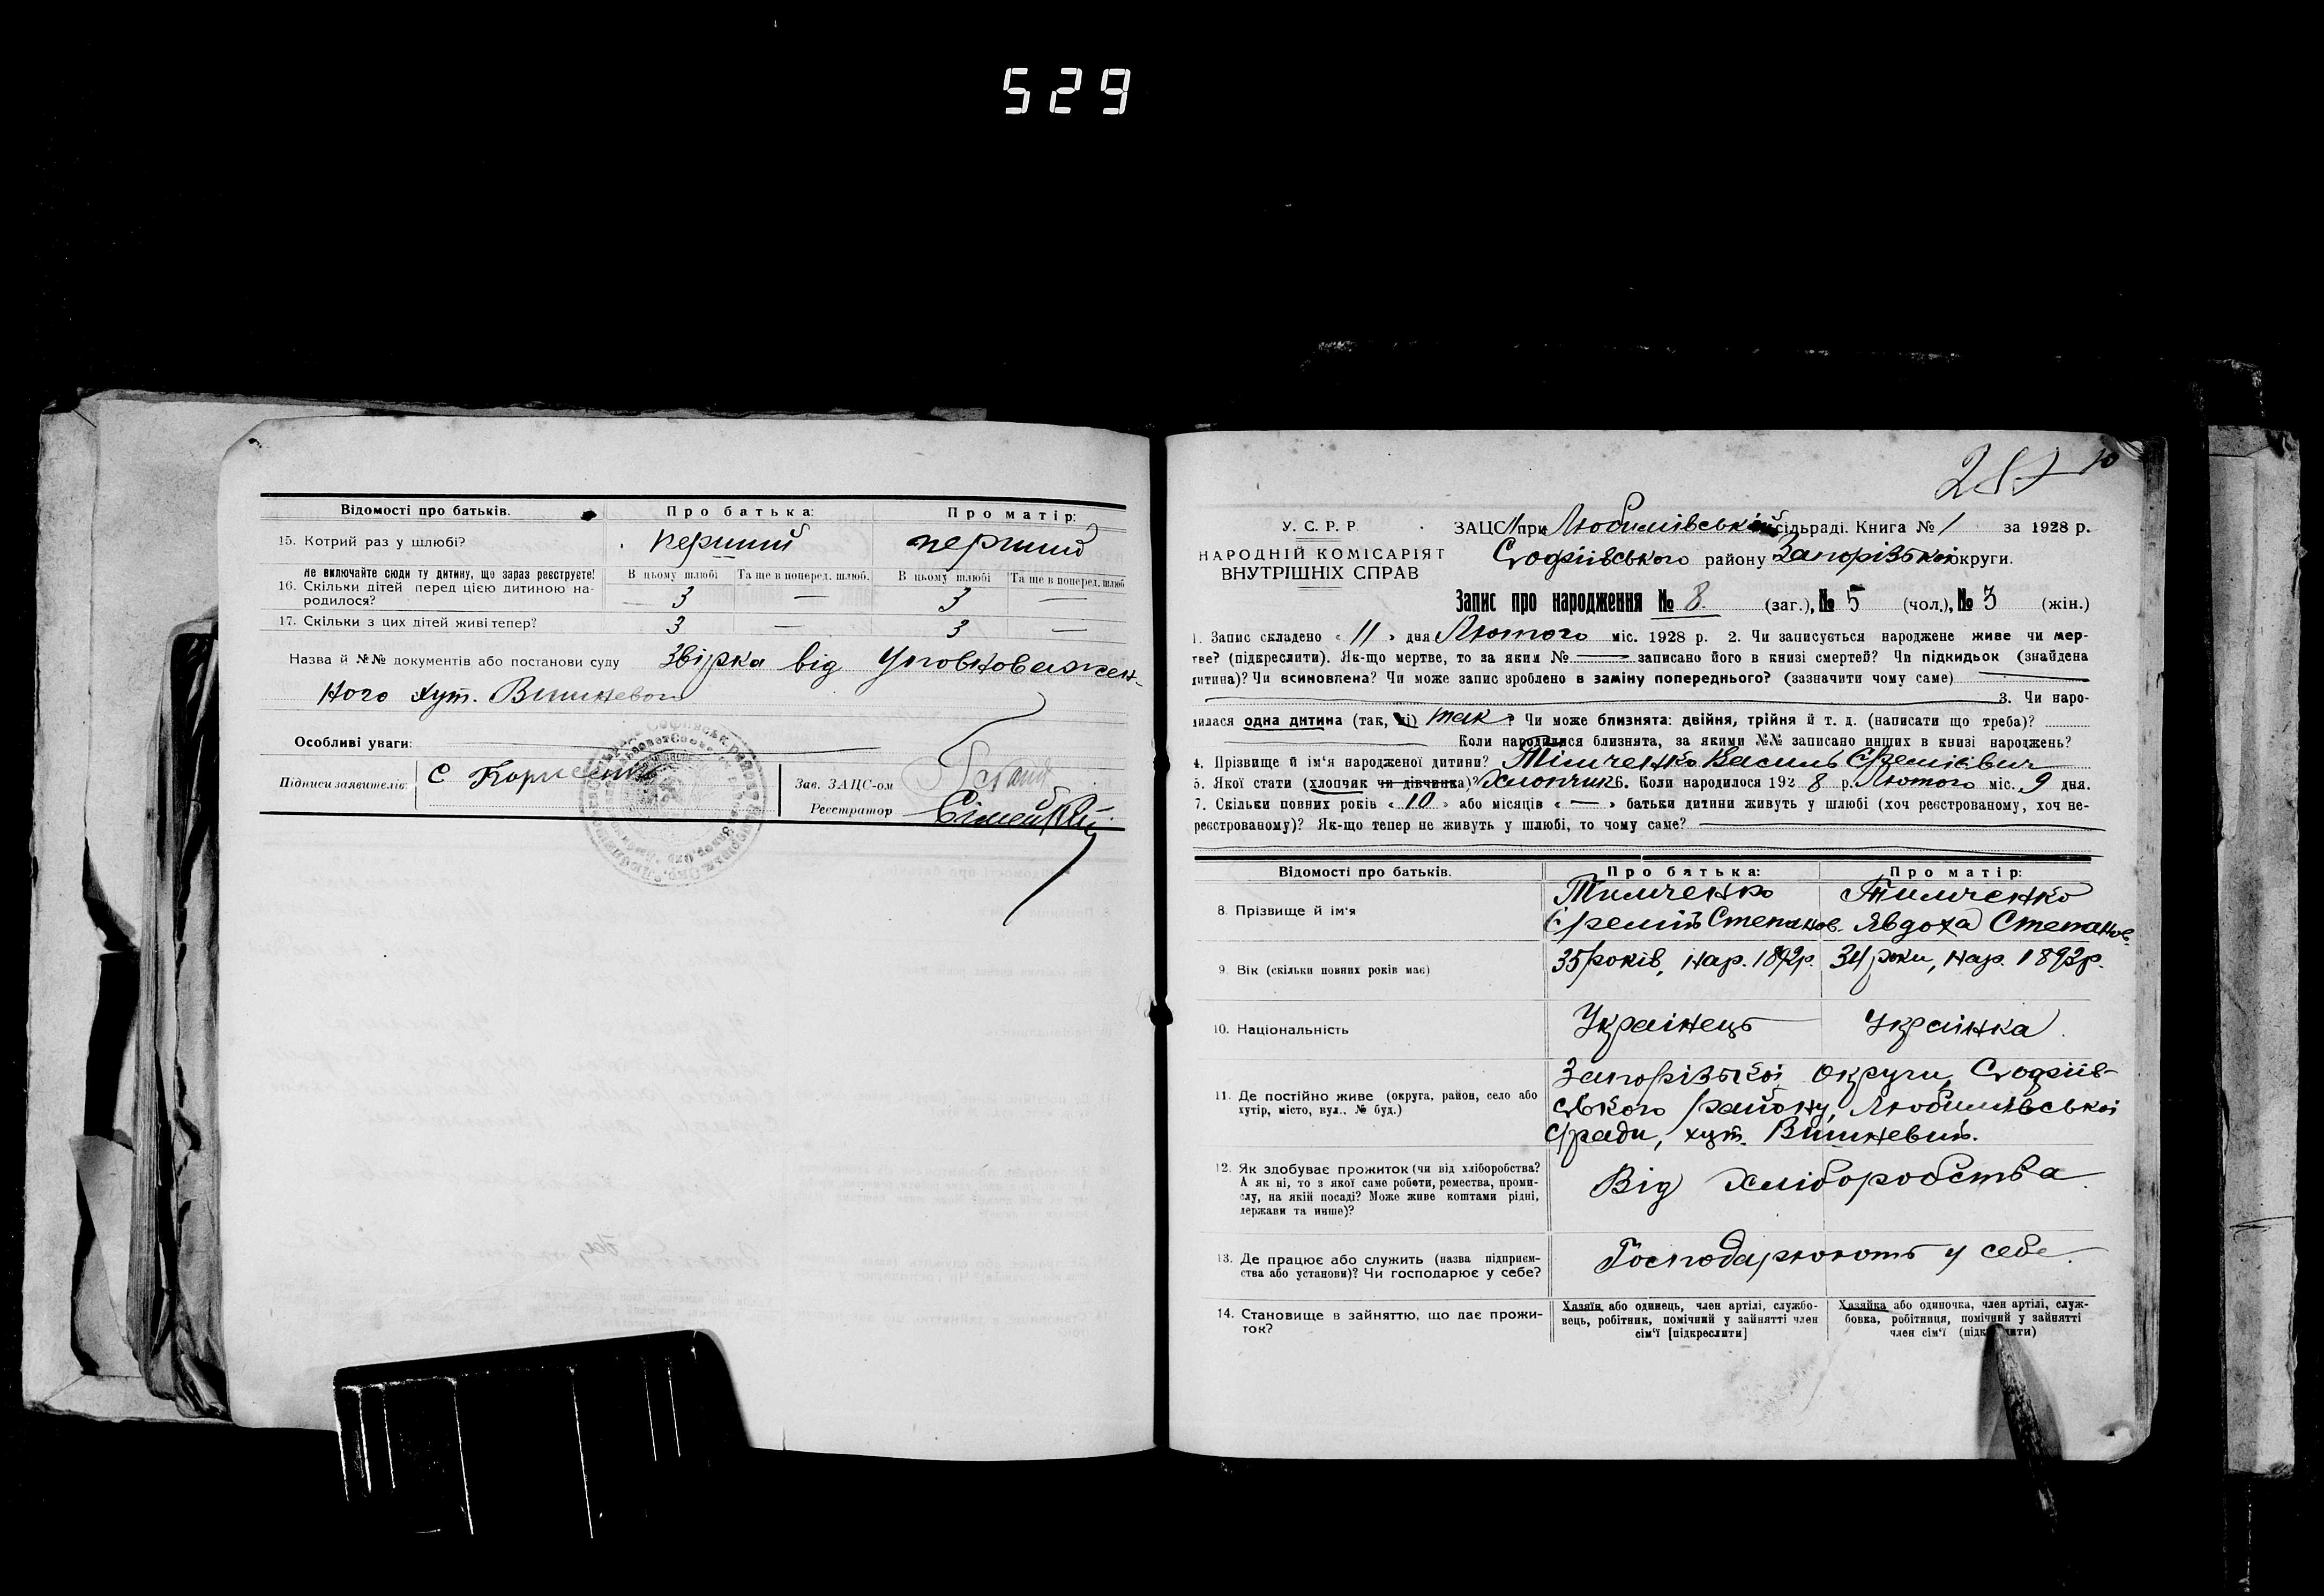 529
Відомості про батьків. Про батька: Про матір:
15. Котрий раз у шлюбі? перший перший
Не включайте сюди ту дитину, що зараз реєструєте! В цьому шлюбі Та ще в поперед. шлюб. В цьому шлюбі Та ще в поперед. шлюб
16. Скільки дітей перед цією дитиною на-
родилося? 3 — 3 —
17. Скільки з цих дітей живі тепер? 3 — 3 —
Назва й №№ документів або постанови суду Звірка від Уповноважен-
ного хут. Вишневого
Особливі уваги:
Підписи заявителів: С
Зав. ЗАЦС-ом
Реєстратор
287 10
У. С. Р. Р.
НАРОДНІЙ КОМІСАРІЯТ
ВНУТРІШНІХ СПРАВ
ЗАЦС при Любимівській сільраді. Книга № 1 за 1928 р.
Софіївського району Запорізької округи.
Запис про народження № 8. (заг.), № 5 (чол.), № 3 (жін.)
1. Запис складено « 11 » дня Лютого міс. 1928 р. 2. Чи записується народжене живе чи мер-
тве? (підкреслити). Як-що мертве, то за яким № — записано його в книзі смертей? Чи підкидьок (знайдена
дитина)? Чи всиновлена? Чи може запис зроблено в заміну попереднього? (зазначити чому саме)
3. Чи наро-
дилася одна дитина (так, ні) так? Чи може близнята: двійня, трійня й т. д. (написати що треба)?
Коли народилися близнята, за якими №№ записано инших в книзі народжень?
4. Прізвище й ім'я народженої дитини? Тімченко Василь Єремієвич
5. Якої стати (хлопчик чи дівчинка)? Хлопчик 6. Коли народилося 1928 р. Лютого міс. 9 дня.
7. Скільки повних років « 10 » або місяців « — » батьки дитини живуть у шлюбі (хоч реєстрованому, хоч не-
реєстрованому)? Як-що тепер не живуть у шлюбі, то чому саме?
Відомості про батьків. Про батька: Про матір:
8. Прізвище й ім'я Тимченко Тимченко
Єремій Степанов. Явдоха Степанов.
9. Вік (скільки повних років має) 35 років, нар. 1892р. 34 роки, нар. 1893р.
10. Національність Українець Українка
11. Де постійно живе (округа, район, село або
хутір, місто, вул., № буд.)
Запорізької Округи, Софіїв-
ського району, Любимівської
с/ради, хут. Вишневий.
12. Як здобуває прожиток (чи від хліборобства?
А як ні, то з якої саме роботи, ремества, проми-
слу, на якій посаді? Може живе коштами рідні,
держави та инше)?
Від хліборобства
13. Де працює або служить (назва підприєм-
ства або установи)? Чи господарює у себе?
Господарюють у себе
14. Становище в зайняттю, що дає прожи-
ток?
Хазяїн або одинець, член артілі, службо-
вець, робітник, помічний у зайнятті член
сім'ї [підкреслити]
Хазяйка або одиночка, член артілі, служ-
бовка, робітниця, помічний у зайнятті
член сім'ї